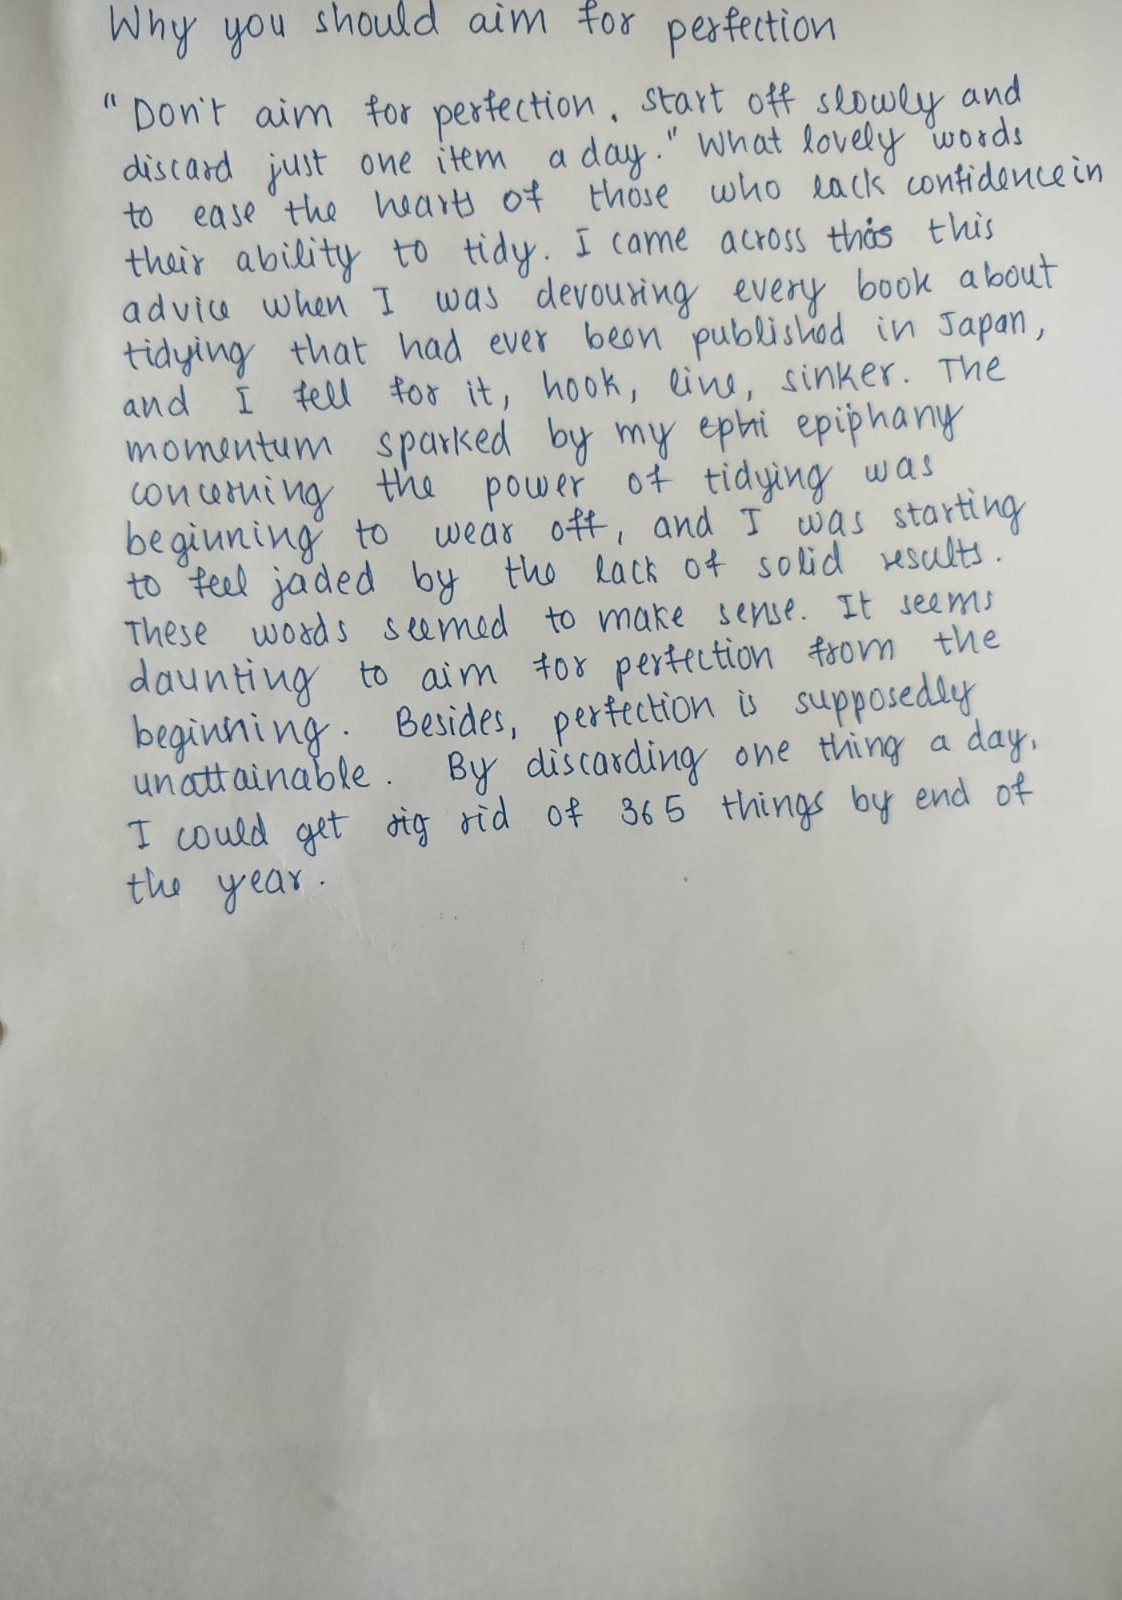 Why you should aim for perfection
"Don't aim for perfection, start off slowly and
discard just one item a day." What lovely words
to ease the hearts of those who lack confidence in
their ability to tidy. I came across this this
advice when I was devouring every book about
tidying that had ever been published in Japan,
and I fell for it, hook, line, sinker. The
momentum sparked by my ephi epiphany
concerning the power of tidying was
beginning to wear off, and I was starting
to feel jaded by the lack of solid results.
These words seemed to make sense. It seems
daunting to aim for perfection from the
beginning. Besides, perfection is supposedly
unattainable. By discarding one thing a day,
I could get rig rid of 365 things by end of
the year.